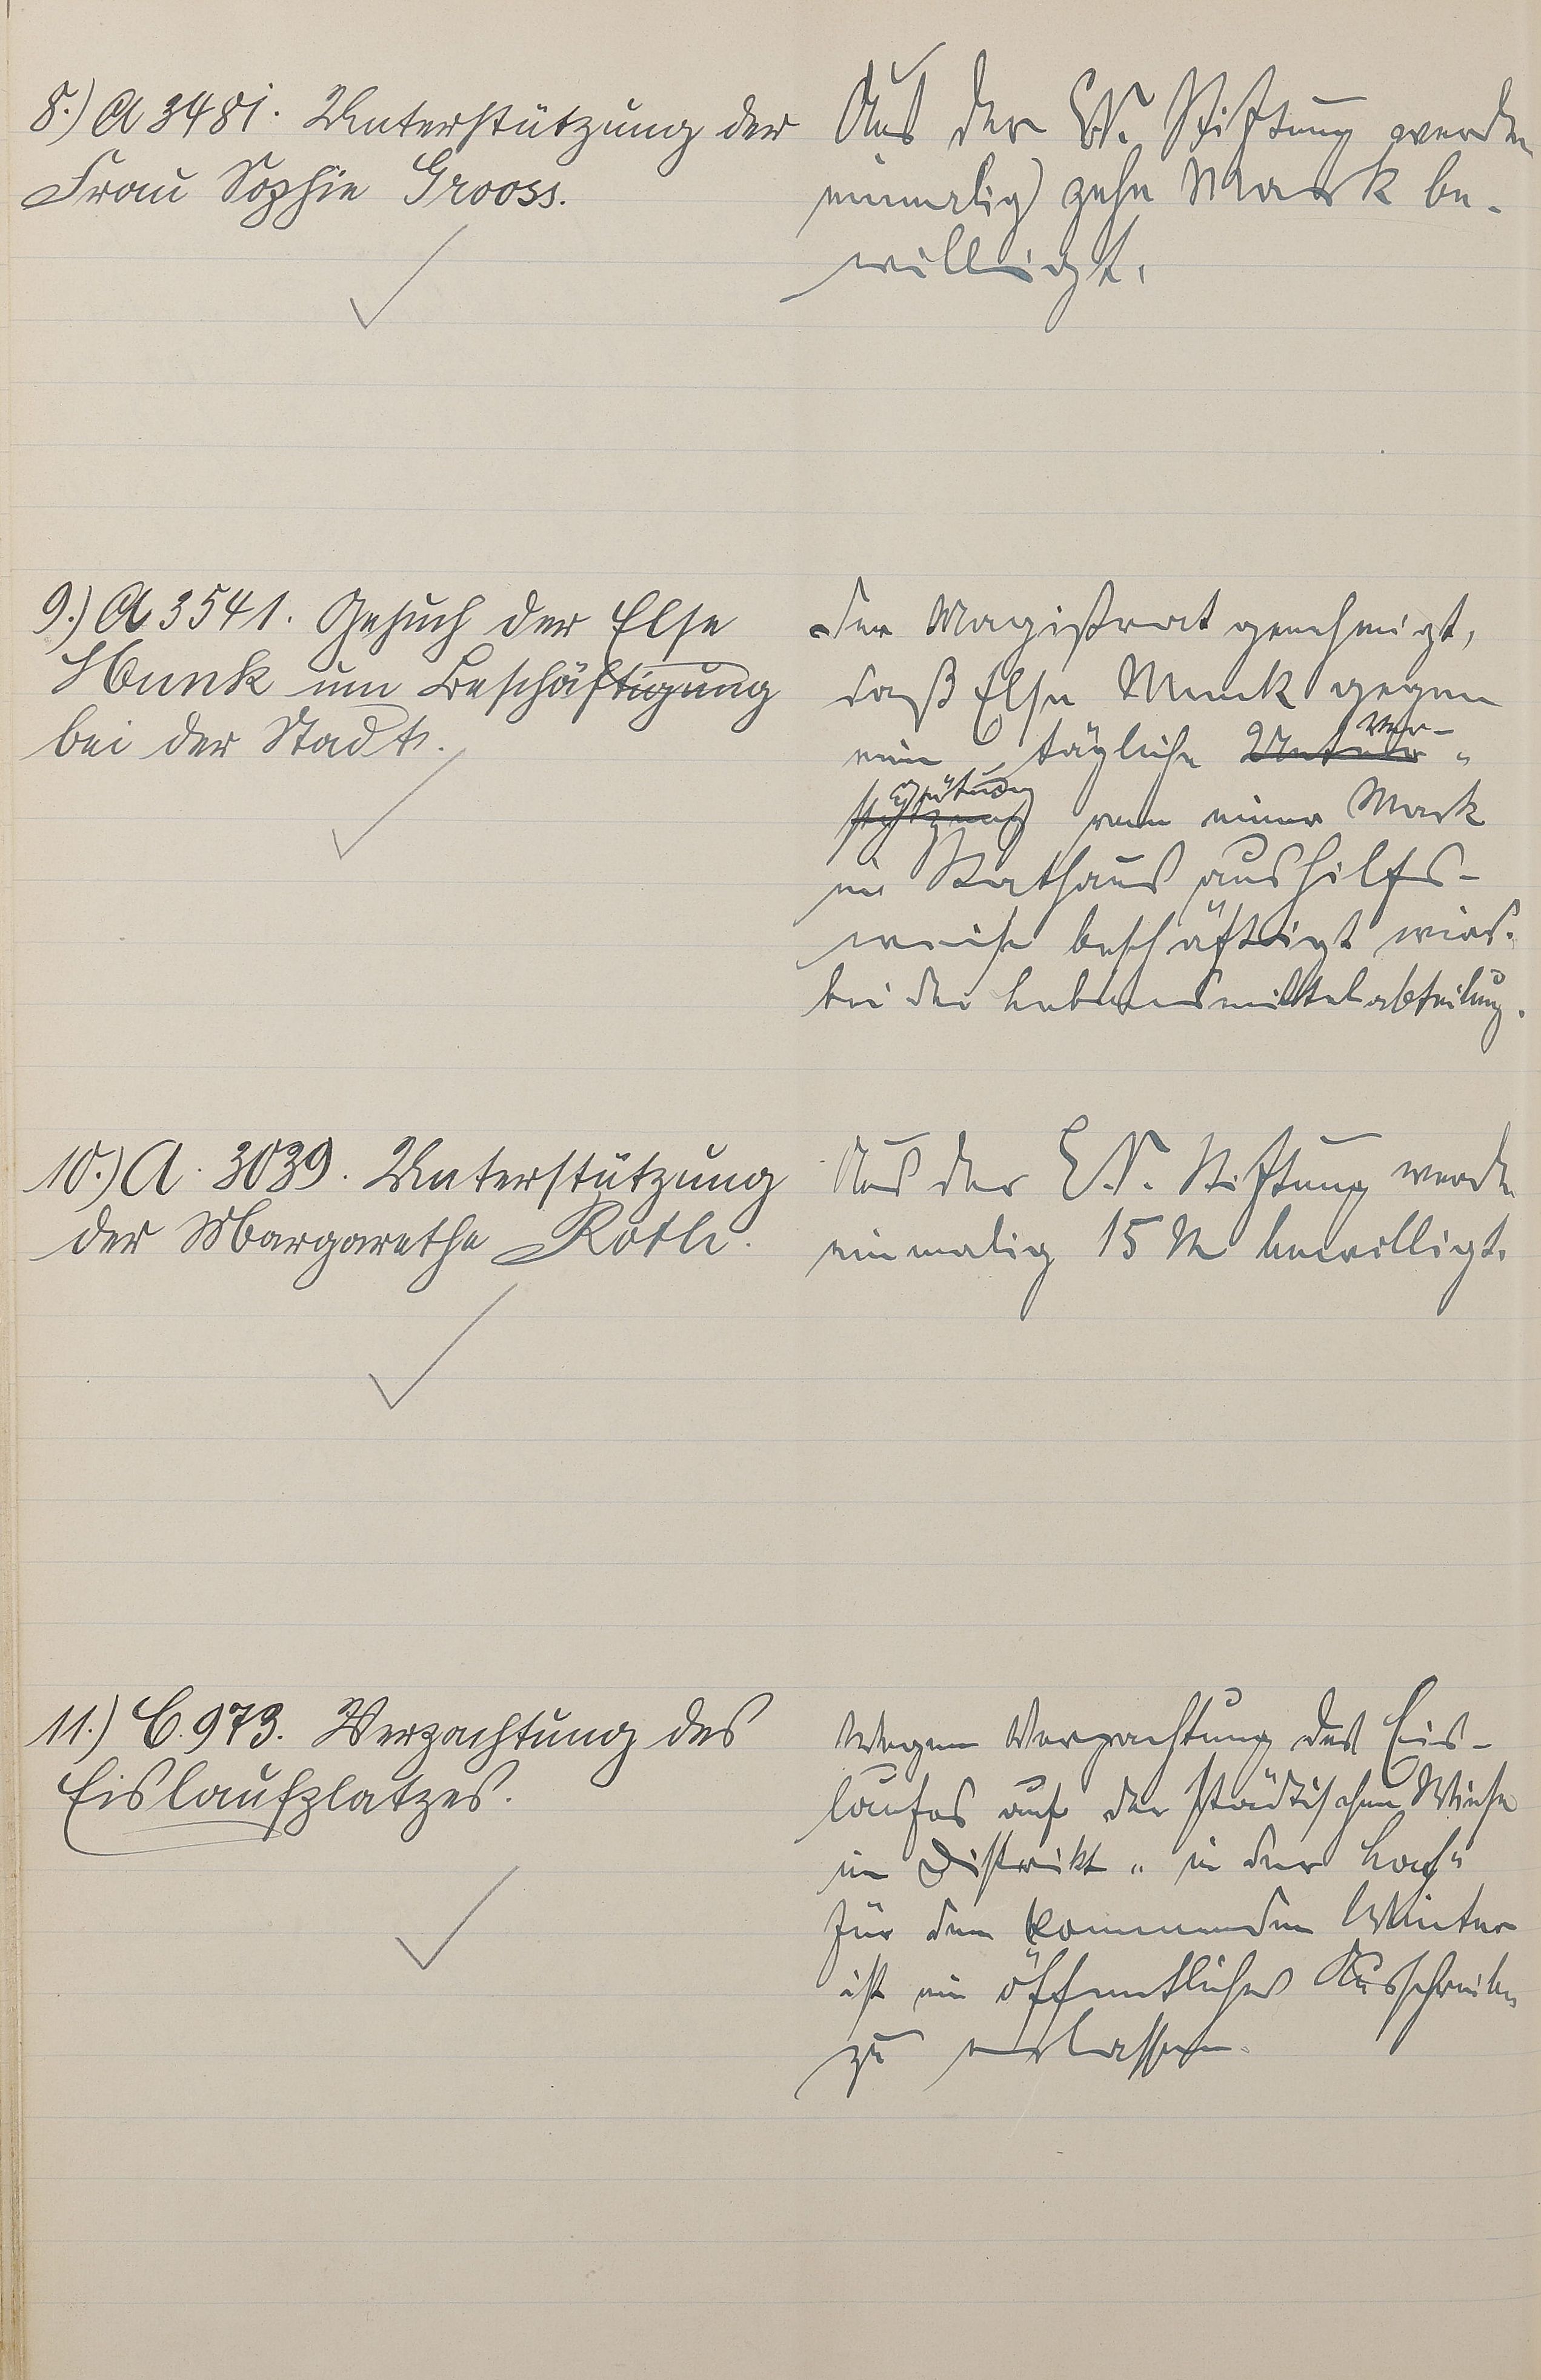 8.) A 3481. Unterstützung der
Frau Sophie Grooss.
Aus der E.V. Stiftung werden
einmalig zehn Mark be-
willigt.
9.) A 3541. Gesuch der Else
Munk um Beschäftigung
bei der Stadt.
Der Magistrat genehmigt,
daß Else Munk gegen
eine tägliche Unter- Ver-
stützung gütung von einer Mark
im Rathaus aushilfs-
weise beschäftigt wird.
bei der Lebensmittelabteilung.
10.) A. 3039. Unterstützung
der Margarethe Roth.
Aus der E.V. Stiftung werden
einmalig 15 M bewilligt.
11.) C. 973. Verpachtung des
Eislaufplatzes.
Wegen Verpachtung des Eis-
laufes auf der städtischen Wiese
im Distrikt „in der
für den kommenden Winter
ist ein öffentliches Ausschreiben
zu erlassen.